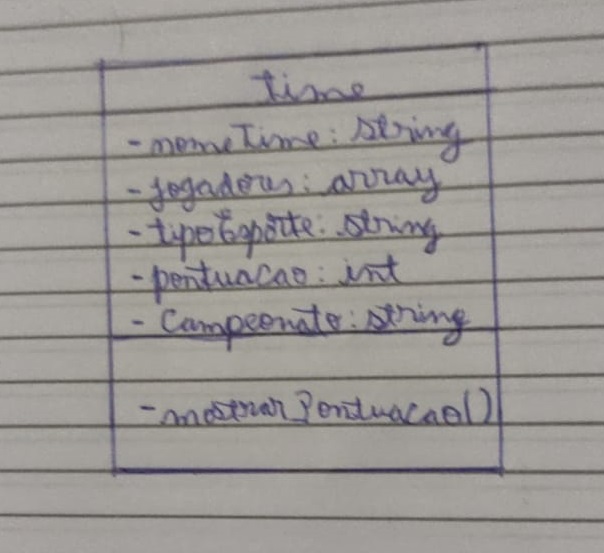 time
- nomeTime: string
- jogadores: array
- tipoEsporte: string
- pontuacao: int
- Campeonato: string
- mostrarPontuacao()